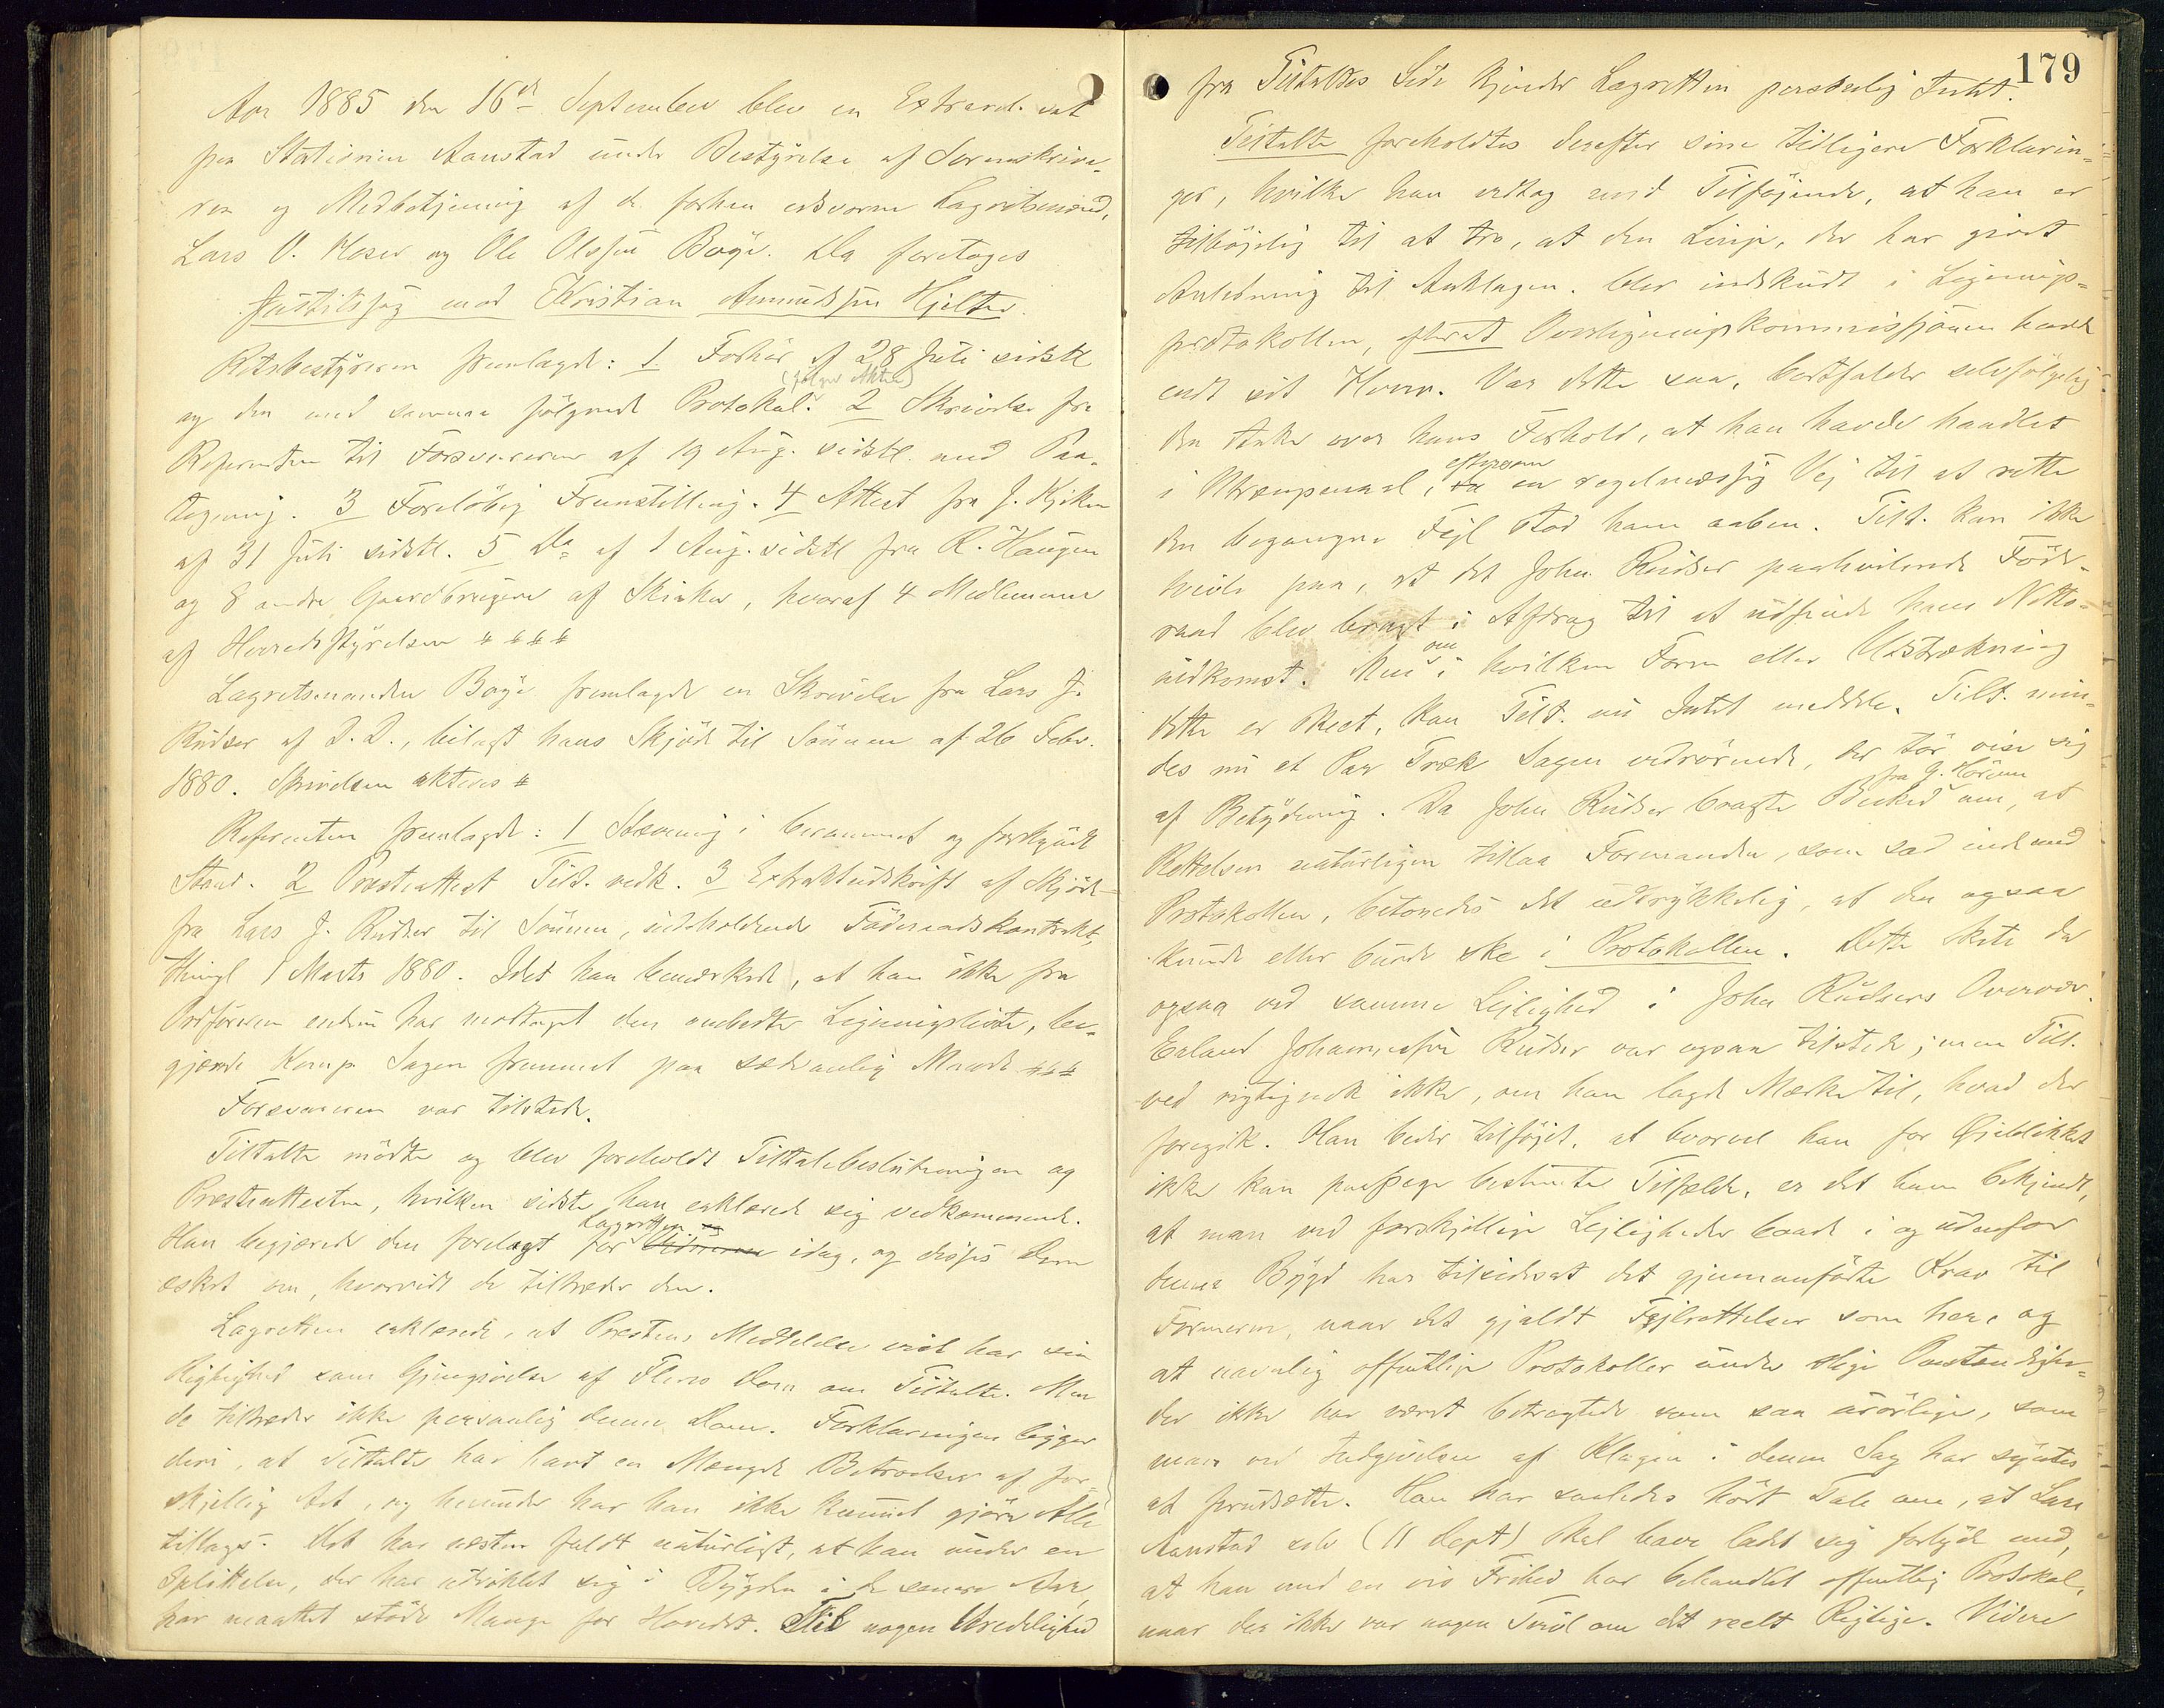 Aar 1885 den 16de September blev en Extraret sat
paa Stationen Aanstad under Bestyrelse af Sorenskrive-
ren og Medbetjening af de forhen edsvorne Lagretsmænd,
Lars O. Moser og Ole Olssøn Bøye. Da foretoges
Justitssag mod Kristian Amundssøn Hjelter.
Retsbestyreren fremlagde: 1. Forhør af 28 Juli sidstl.
og den med samme følgende Protokol. (følger Akten) 2 Skrivelse fra
Referenten til Forsvareren af 19 Aug. sidstl. med Paa-
tegning. 3 Foreløbig Fremstilling. 4 Attest fra J. Kjiken
af 31 Juli sidstl. 5 Do af 1 Aug. sidstl. fra R. Haugen
og 8 andre Gaardbrugere af Skiaker, hvoraf 4 Medlemmer
af Herredsstyrelsen # # # #
Lagretsmanden Bøye fremlagde en Skrivelse fra Lars J.
Rudser af D. D., bilagt hans Skjøde til Sønnen af 26 Febr.
1880. Skrivelsen akteres #
Referenten fremlagde: 1 Stævning i berammet og forkyndt
Stand. 2 Presteattest Tilt. vedk. 3 Extraktudskrift af Skjøde
fra Lars J. Rudser til Sønnen, indeholdende Føderaadskontrakt,
thingl. 1 Marts 1880. Idet han bemærkede, at han ikke fra
Ordføreren endnu har modtaget den ombedte Ligningsliste, be-
gjærede Komp. Sagen fremmet paa sædvanlig Maade # # #
Forsvareren var tilstede.
Tiltalte mødte og blev foreholdt Tiltalebeslutningen og
Presteattesten, hvilken sidste han erklærede sig vedkommende.
Han begjærede den forelagt for Lagretten idag, og disses Dom
æsket om, hvorvidt de tiltræder den.
Lagretten erklærede, at Prestens Meddelelse vist har sin
Rigtighed som Gjengivelse af Fleres Dom om Tiltalte. Men
de tiltræder ikke personlig denne Dom. Forklaringen ligger
deri, at Tiltalte har havt en Mængde Betroelser af for-
skjellig Art, og herunder har han ikke kunnet gjøre Alle
tillags. Det har næsten faldt naturligt, at han under en
Splittelse, der har udviklet sig i Bygden i de senere Aar,
har maattet støde Mange for Hovedet. Til nogen Uredelighed
179
fra Tiltaltes Side kjender Lagretten personlig Intet.
Tiltalte foreholdtes derefter sine tidligere Forklarin-
ger, hvilke han vedtog med Tilføjende, at han er
tilbøjelig til at tro, at den Linje, der har givet
Anledning til Anklagen, blev indskudt i Lignings-
protokollen, efterat Overligningskommissjonen havde
endt sit Hverv. Var dette saa, bortfalder selvfølgelig
den Anke over hans Forhold, at han havde handlet
i Utrængsmaal, eftersom en regelmæssig Vej til at rette
den begangne Fejl stod ham aaben. Tilt. kan ikke
tvivle paa, at det John Rudser paahvilende Føde-
raad blev bragt i Afdrag til at udfinde hans Netto-
indkomst. Men om i hvilken Form eller Udstrækning
dette er skeet, kan Tilt. nu Intet meddele. Tilt. min-
des nu et Par Træk Sagen vedrørende, der tør vise sig
af Betydning. Da John Rudser bragte Besked fra G. Hörven om, at
Rettelsen naturligen tillaa Formanden, som sad inde med
Protokollen, betonedes det udtrykkelig, at den ogsaa
kunde eller burde ske i Protokollen. Dette skete da
ogsaa ved samme Lejlighed i John Rudsers Overvær.
Erland Johannessøn Rudser var ogsaa tilstede; men Tilt.
ved rigtignok ikke, om han lagde Mærke til, hvad der
foregik. Han beder tilføjet, at hvorvel han for Øieblikket
ikke kan paapege bestemte Tilfælde, er det ham bekjendt,
at man ved forskjellige Lejligheder baade i og udenfor
denne Bygd har tilsidesat det gjennemførte Krav til
Formerne, naar det gjaldt Fejlrettelser som her, og
at navnlig offentlige Protokoller under slige Omstændighe-
der ikke har været betragtede som saa urørlige, som
man ved Indgivelsen af Klagen i denne Sag har syntes
at forudsætte. Han har saaledes hørt Tale om, at Lars
Aanstad selv (11 Sept) skal have ladet sig forlyde med,
at han med en vis Frihed har behandlet offentlig Protokol,
naar der ikke var nogen Tvivl om det reelt Rigtige. Videre